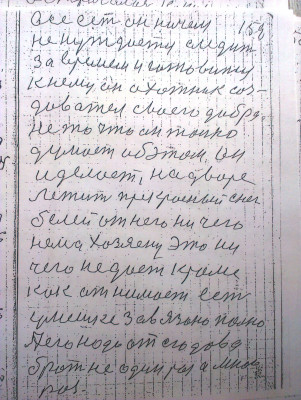 все сет он ничем 153
не нуждается следит
за временем и готовится
к нему он охотник соз-
дователь своего добра,
не то что он только
думает об этом, он
и делает, на дворе
летит прекрасный снег
белей от него ни чего
нема хозяену это ни
чего не дает кроме
как отнимает есть
у меня завязано полно
его надо от сюдова
брат не один раз а много
раз.